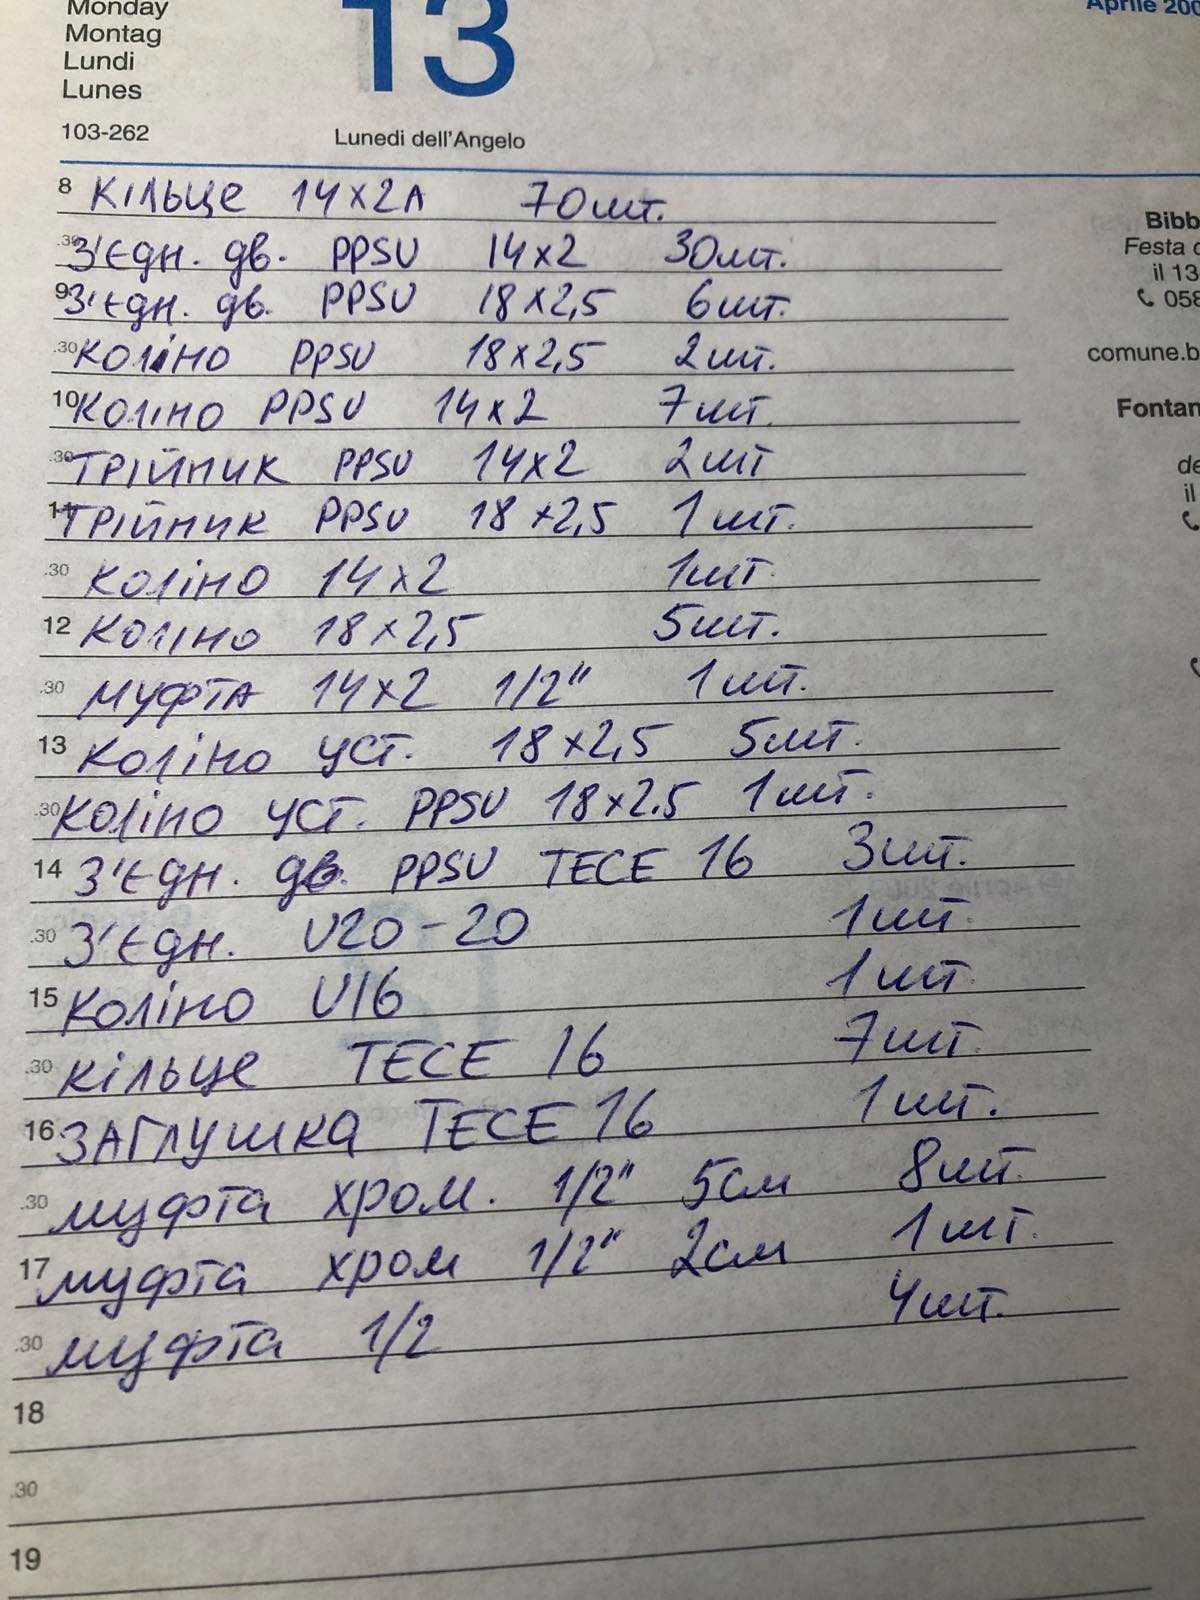 Monday
Montag
Lundi
Lunes
103-262
13
Lunedi dell'Angelo
Aprile 200
8 КІЛЬЦЕ 14х2А 70шт.
.30 З'ЄДН. ДВ. PPSU 14х2 30шт.
9 З'ЄДН. ДВ. PPSU 18х2,5 6шт.
.30 КОЛІНО PPSU 18х2,5 2шт.
10 КОЛІНО PPSU 14х2 7шт.
.30 ТРІЙНИК PPSU 14х2 2шт
11 ТРІЙНИК PPSU 18х2,5 1шт.
.30 КОЛІНО 14х2 1шт.
12 КОЛІНО 18х2,5 5шт.
.30 МУФТА 14х2 1/2" 1шт.
13 КОЛІНО УСТ. 18х2,5 5шт.
.30 КОЛІНО УСТ. PPSU 18х2.5 1шт.
14 З'ЄДН. ДВ. PPSU TECE 16 3шт.
.30 З'ЄДН. U20-20 1шт.
15 КОЛІНО U16 1шт.
.30 кільце TECE 16 7шт.
16 ЗАГЛУШКА TECE 16 1шт.
.30 муфта хром. 1/2" 5см 8шт.
17 муфта хром 1/2" 2см 1шт.
.30 муфта 1/2 4шт.
18
.30
19
Bibb
Festa d
il 13
058
comune.b
Fontan
de
il